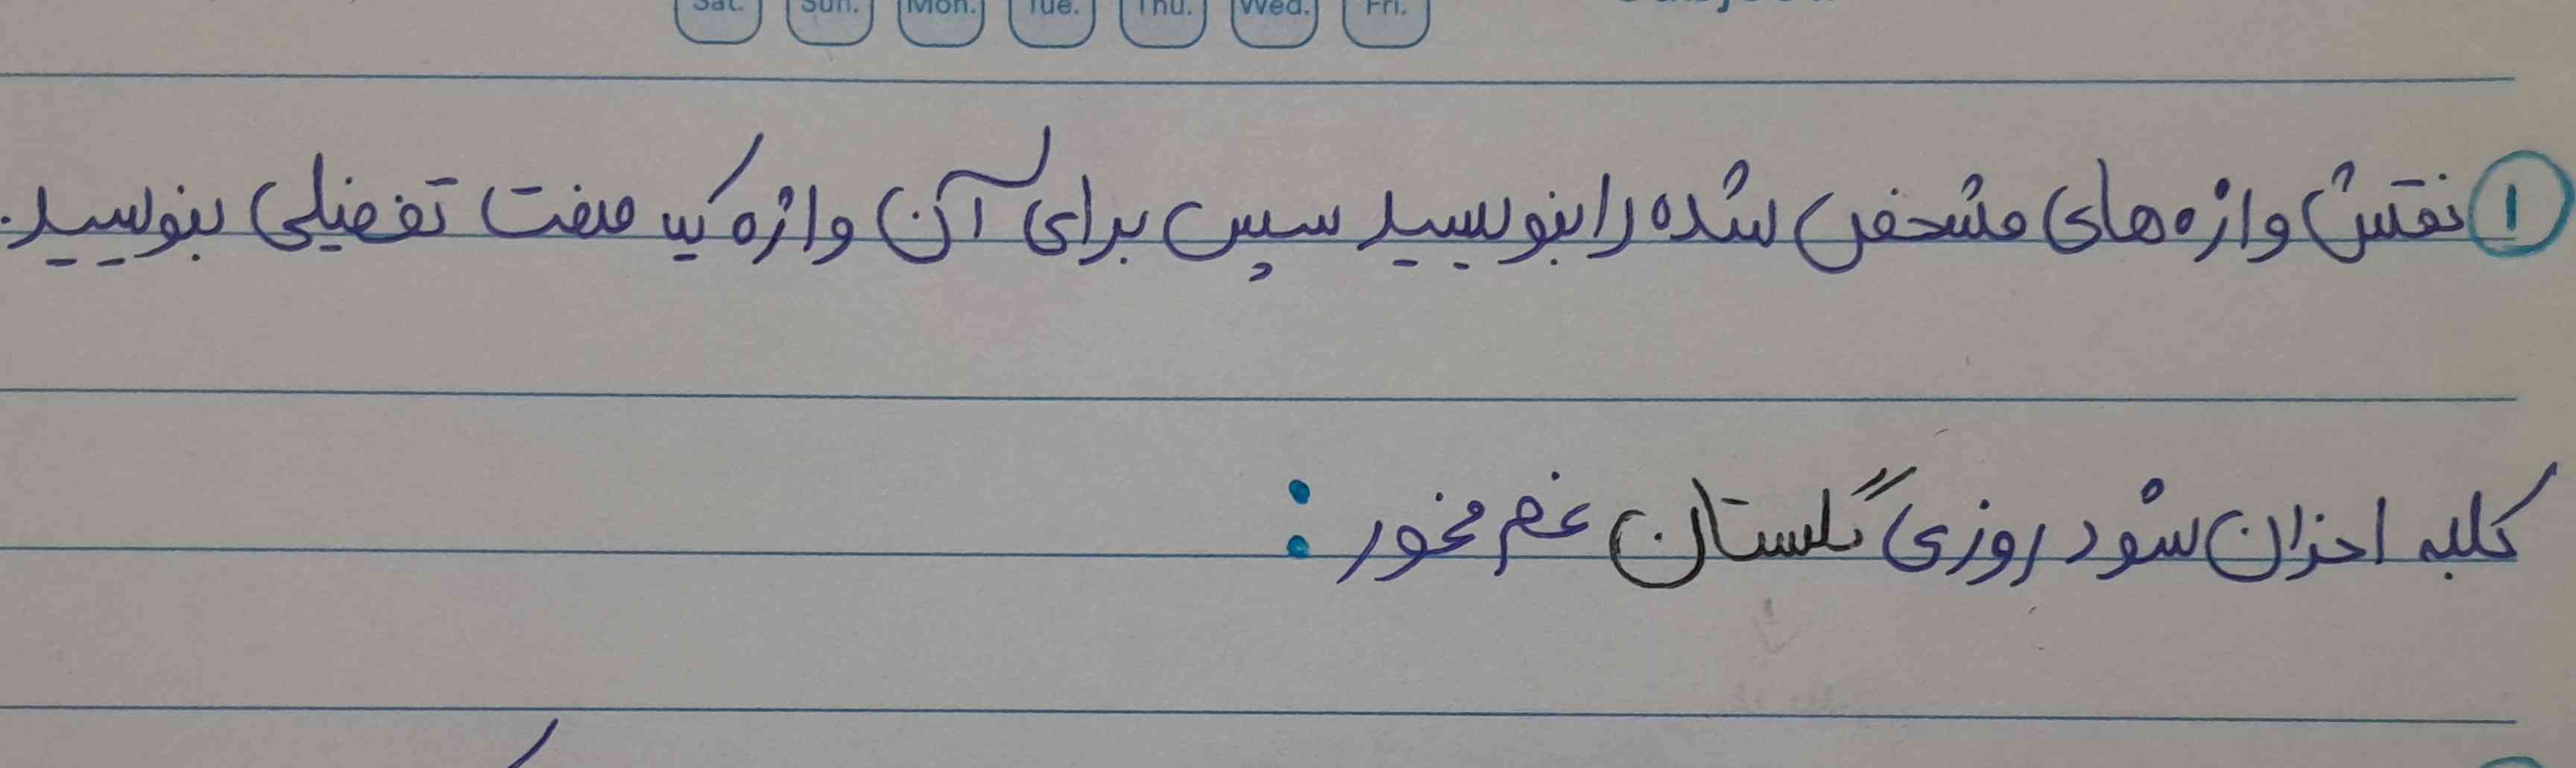 Sat. Sun. Mon. Tue. Thu. Wed. Fri.
۱ نقش واژه های مشخص شده را بنویسید سپس برای آن واژه یک صفت تفضیلی بنویسید.
کلبه احزان شود روزی گلستان غم مخور :